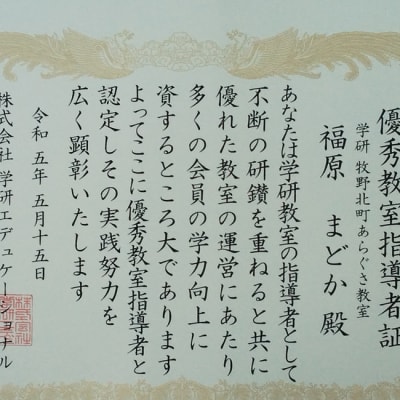 優秀教室指導者証
学研 牧野北町あらぐさ教室
福原 まどか 殿
あなたは学研教室の指導者として
不断の研鑽を重ねると共に
優れた教室の運営にあたり
多くの会員の学力向上に
資するところ大であります
よってここに優秀教室指導者と
認定しその実践努力を
広く顕彰いたします
令和五年五月十五日
株式会社 学研エデュケーショナル